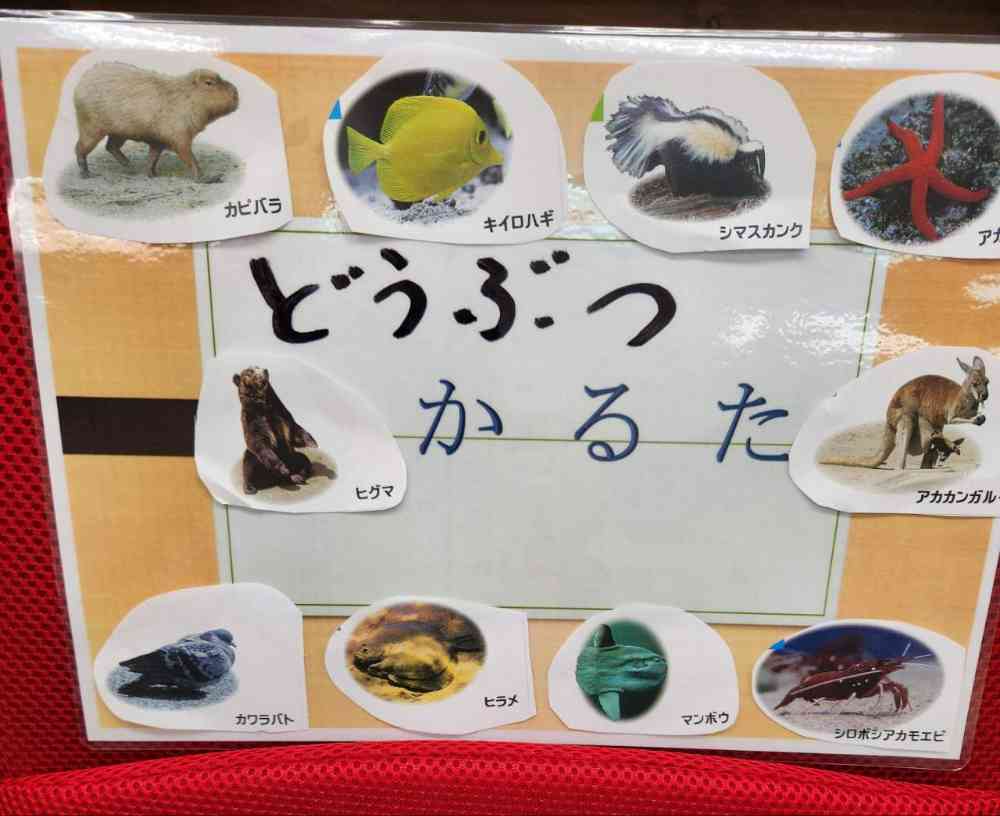 カピバラ
キイロハギ
シマスカンク
アカ
どうぶつ
かるた
ヒグマ
アカカンガルー
カワラバト
ヒラメ
マンボウ
シロボシアカモエビ